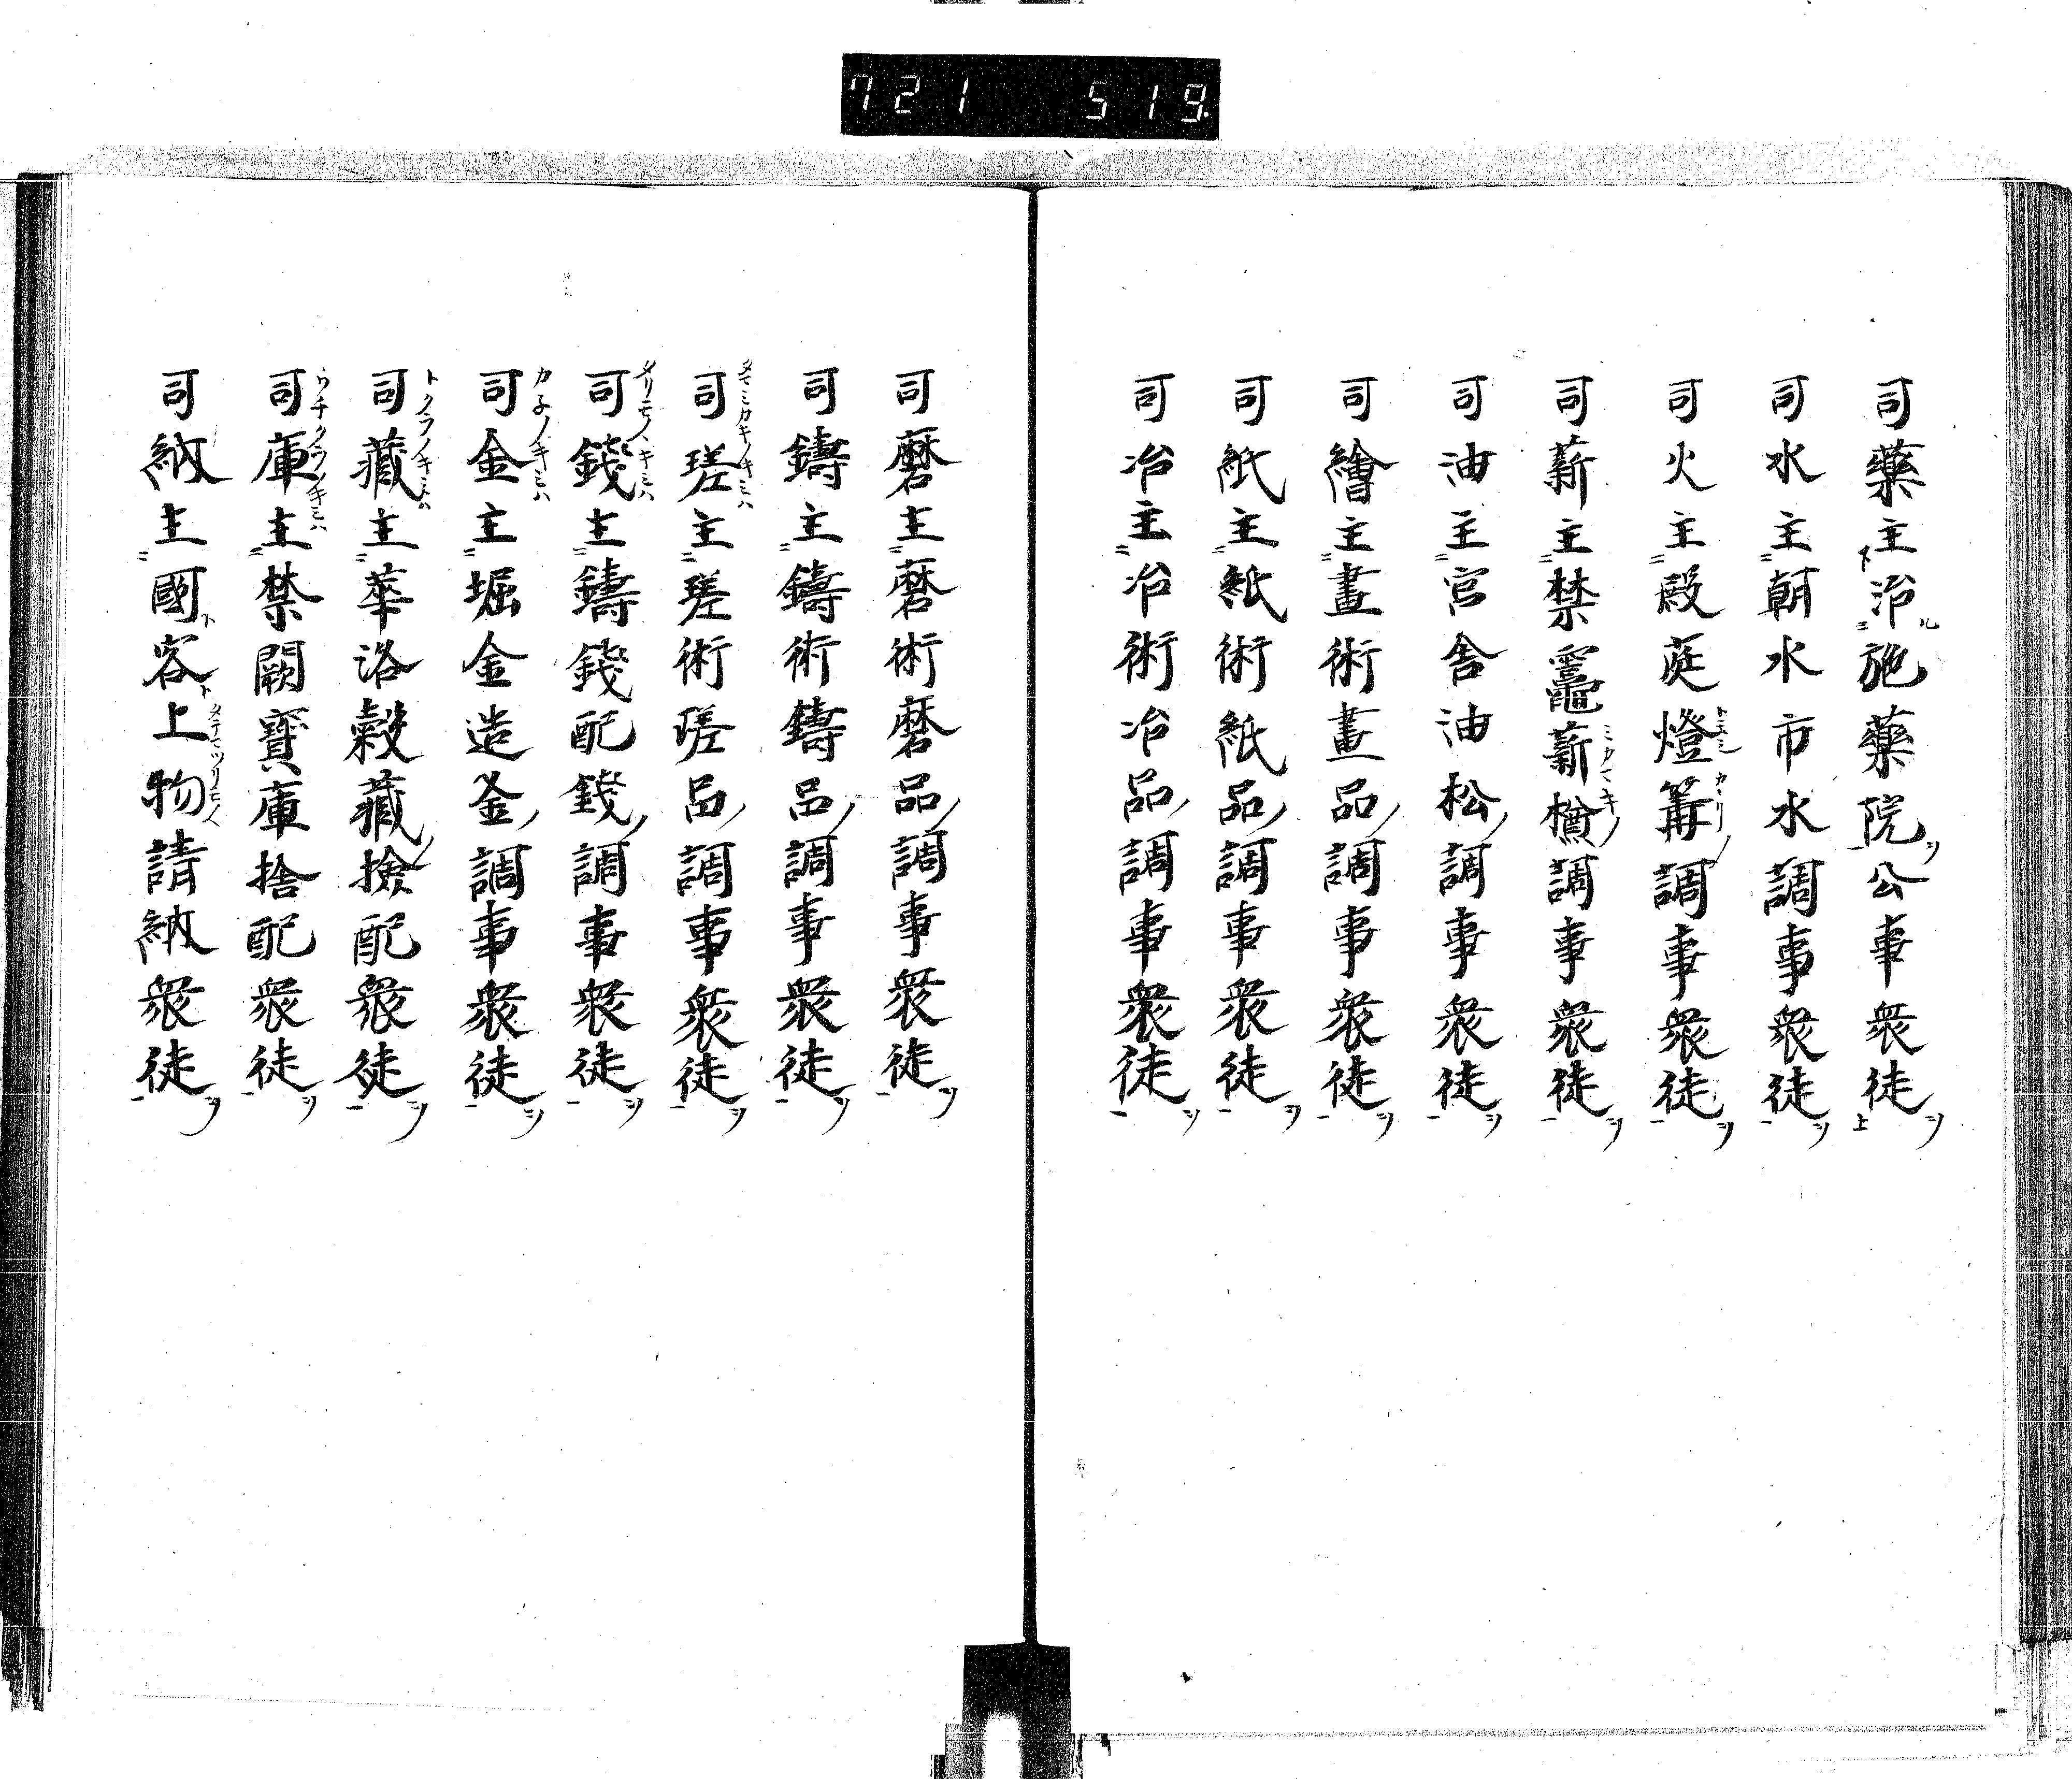 721 519
司藥主治施藥院公事衆徒
司水主朝水市水調事衆徒
司火主殿庭燈篝調事衆徒
司薪主禁竈薪樵調事衆徒
司油主宮舍油松調事衆徒
司繪主畫術畫品調事衆徒
司紙主紙術紙品調事衆徒
司冶主冶術冶品調事衆徒
司磨主磨術磨品調事衆徒
司鑄主鑄術鑄品調事衆徒
司瑳主瑳術瑳品調事衆徒
司錢主鑄錢配錢調事衆徒
司金主堀金造釜調事衆徒
司藏主華洛穀藏撿配衆徒
司庫主禁闕寶庫捨配衆徒
司納主國客上物請納衆徒